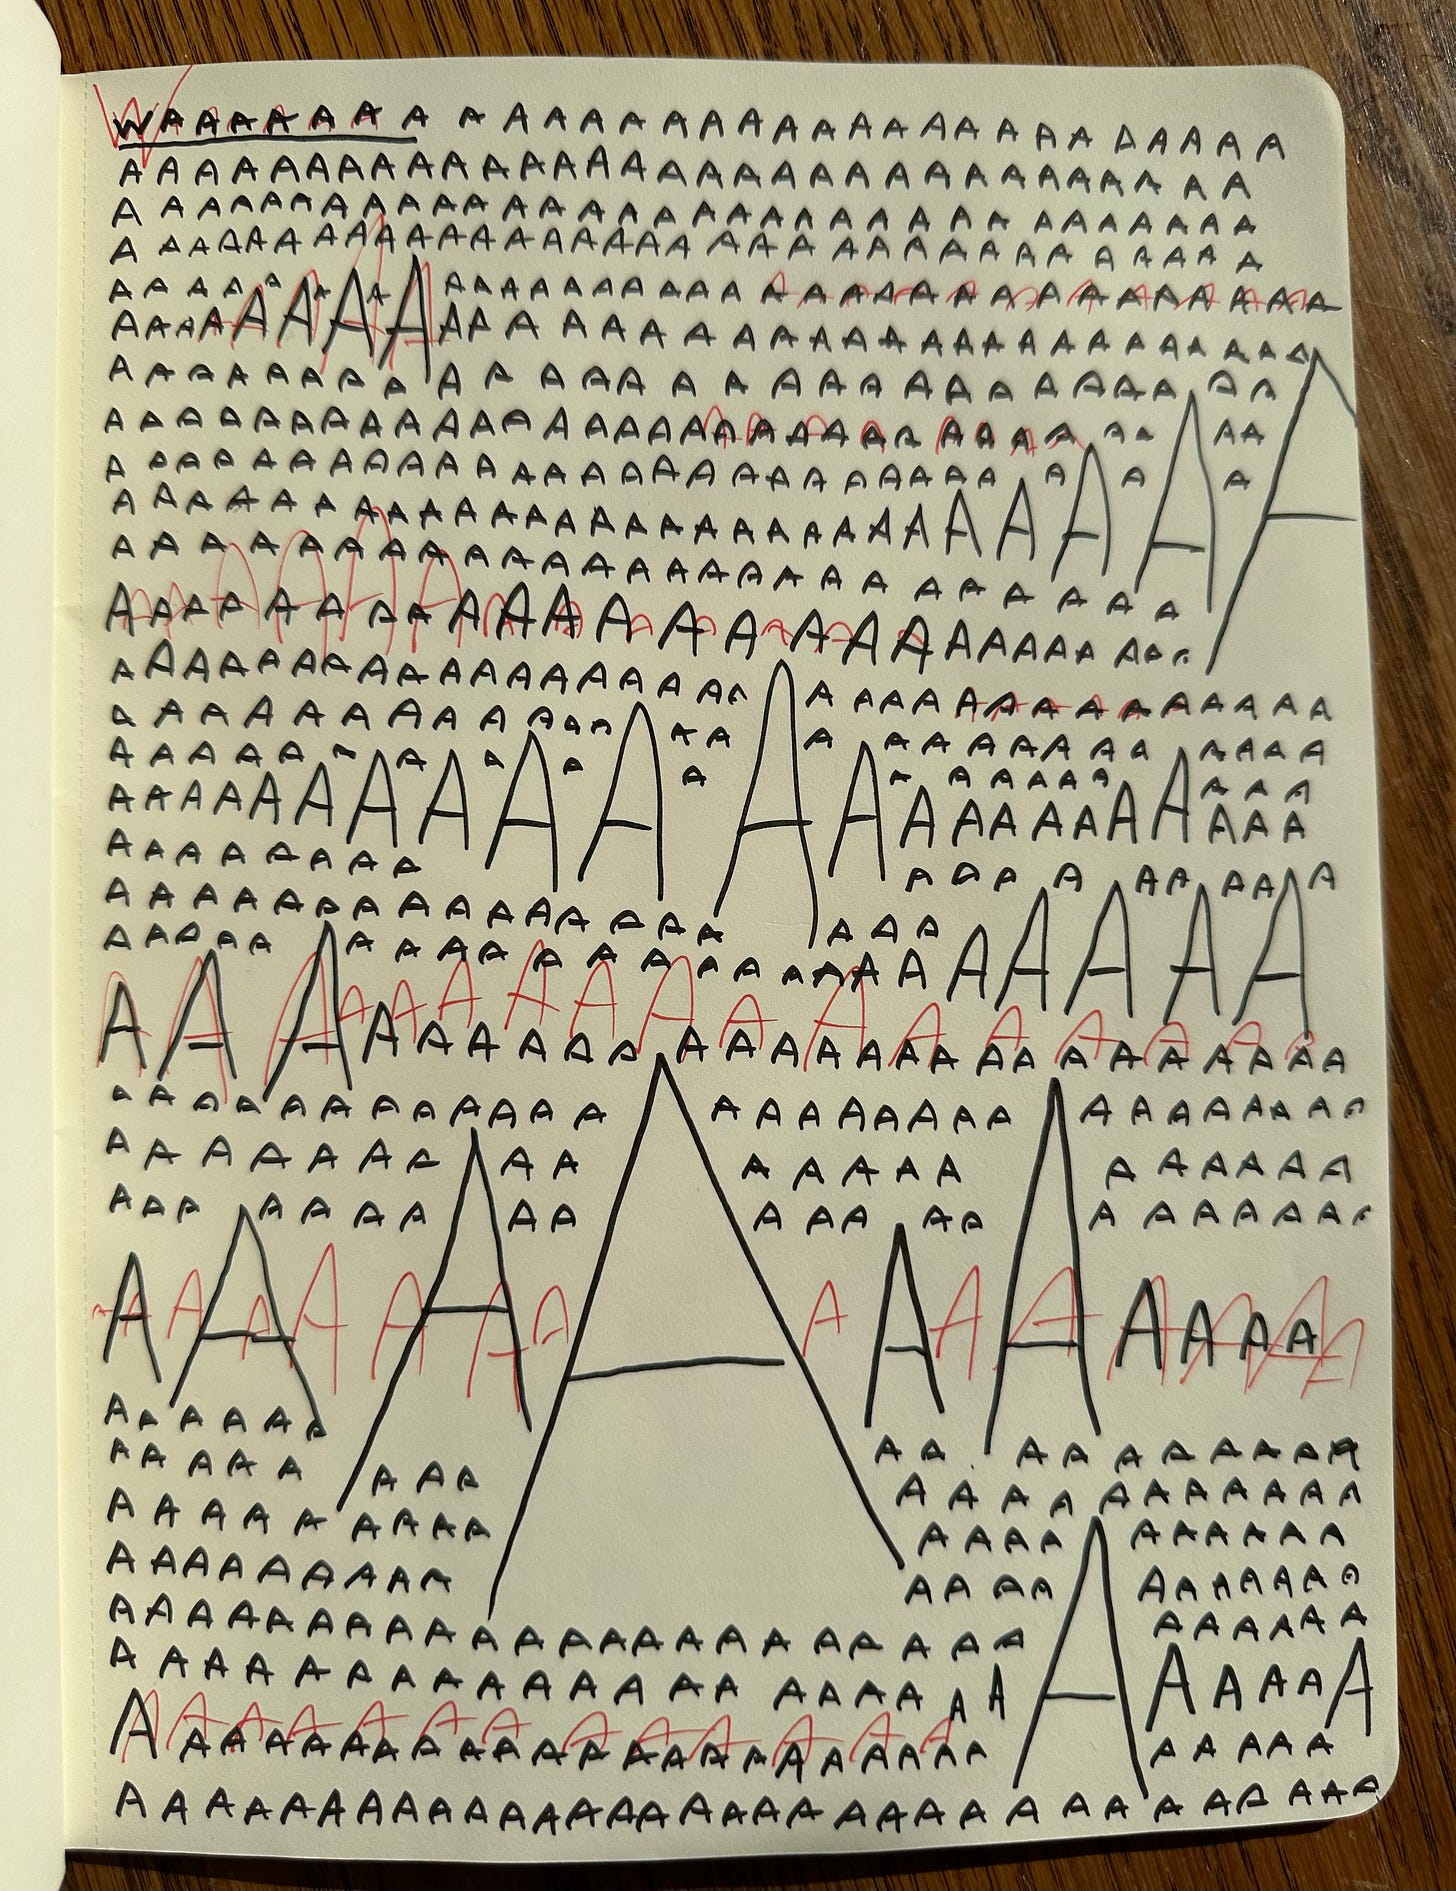 WAAAAAAA AAAAAAAAAAAAAAAAAAAAAA
AAAAAAAAAAAAAAAAAAAAAAAAAAAAAA
AAAAAAAAAAAAAAAAAAAAAAAAAAAAAA
AAAAAAAAAAAAAAAAAAAAAAAAAAAAAA
AAAAAAAAAAAAAAAAAAAAAAAAAAAAAA
AAAAAAAAAAAAAAAAAAAAAAAAAAAAAA
AAAAAAAAAAAAAAAAAAAAAAAAAA
AAAAAAAAAAAAAAAAAAAAAAAAAAAAAA
AAAAAAAAAAAAAAAAAAAAAAAAAAA
AAAAAAAAAAAAAAAAAAAAAAAAAAA
AAAAAAAAAAAAAAAAAAAAAAAA
AAAAAAAAAAAAAAAAAAAAAAAAA
AAAAAAAAAAAAAAAAAAAAAAAAAAAAA
AAAAAAAAAAAAAAAAAAAAAAAAA
AAAAAAAAAAAAAAAAAAAAAAA
AAAAAAAAAAAAAAAAAAAAAA
AAAAAAAAAAAAAAAAAA
AAAAAAAAAAAAAAAAAAA
AAAAAAAAAAAAAAAAAAAAAAAAA
AAAAAAAAAAAAAAAAAAAAAAAAAAA
AAAAAAAAAAAAAAAAAAAAAAAAAA
AAAAAAAAAAAAAAAAAAAAA
AAAAAAAAAAAAAAAAAAAAAA
AAAAAAAAAAA
AAAAAAAAAAAAAAAA
AAAAAAAAAAAAAAAAA
AAAAAAAAAAAAAAAAAAAA
AAAAAAAAAAAAAAAAAAA
AAAAAAAAAAAAAAAAAAA
AAAAAAAAAAAAAAAAAAAAAAAAA
AAAAAAAAAAAAAAAAAAAAAAAA
AAAAAAAAAAAAAAAAAAAAAAAAA
AAAAAAAAAAAAAAAAAAAAAAAAAAAAAAA